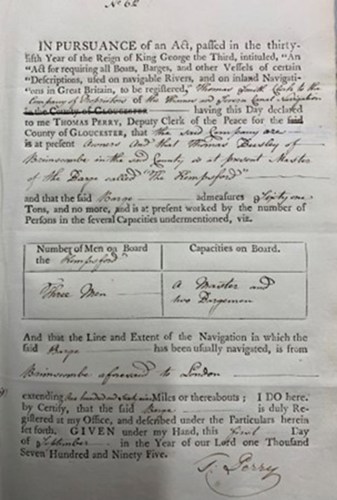 No. 62
IN PURSUANCE of an Act, passed in the thirty-
fifth Year of the Reign of King George the Third, intituled, "An
"Act for requiring all Boats, Barges, and other Vessels of certain
"Descriptions, used on navigable Rivers, and on inland Navigati-
"ons in Great Britain, to be registered," Thomas Smith Clerk to the
Company of Proprietors of the Thames and Severn Canal Navigation
in the County of GLOUCESTER, having this Day declared
to me THOMAS PERRY, Deputy Clerk of the Peace for the said
County of GLOUCESTER, that the said Company are
is at present Owners And that Thomas of
Brimscombe in the said County is at present Master
of the Barge called "The Kempsford"
and that the said Barge admeasures Sixty one
Tons, and no more, and is at present worked by the number of
Persons in the several Capacities undermentioned, viz.
Number of Men on Board
the Kempsford
Capacities on Board.
Three Men
A Master and
two Bargemen
And that the Line and Extent of the Navigation in which the
said Barge has been usually navigated, is from
Brimscombe aforesaid to London
extending two hundred and Miles or thereabouts; I DO here-
by Certify, that the said Barge is duly Re-
gistered at my Office, and described under the Particulars herein
set forth. GIVEN under my Hand, this First Day
of September in the Year of our Lord one Thousand
Seven Hundred and Ninety Five.
T. Perry